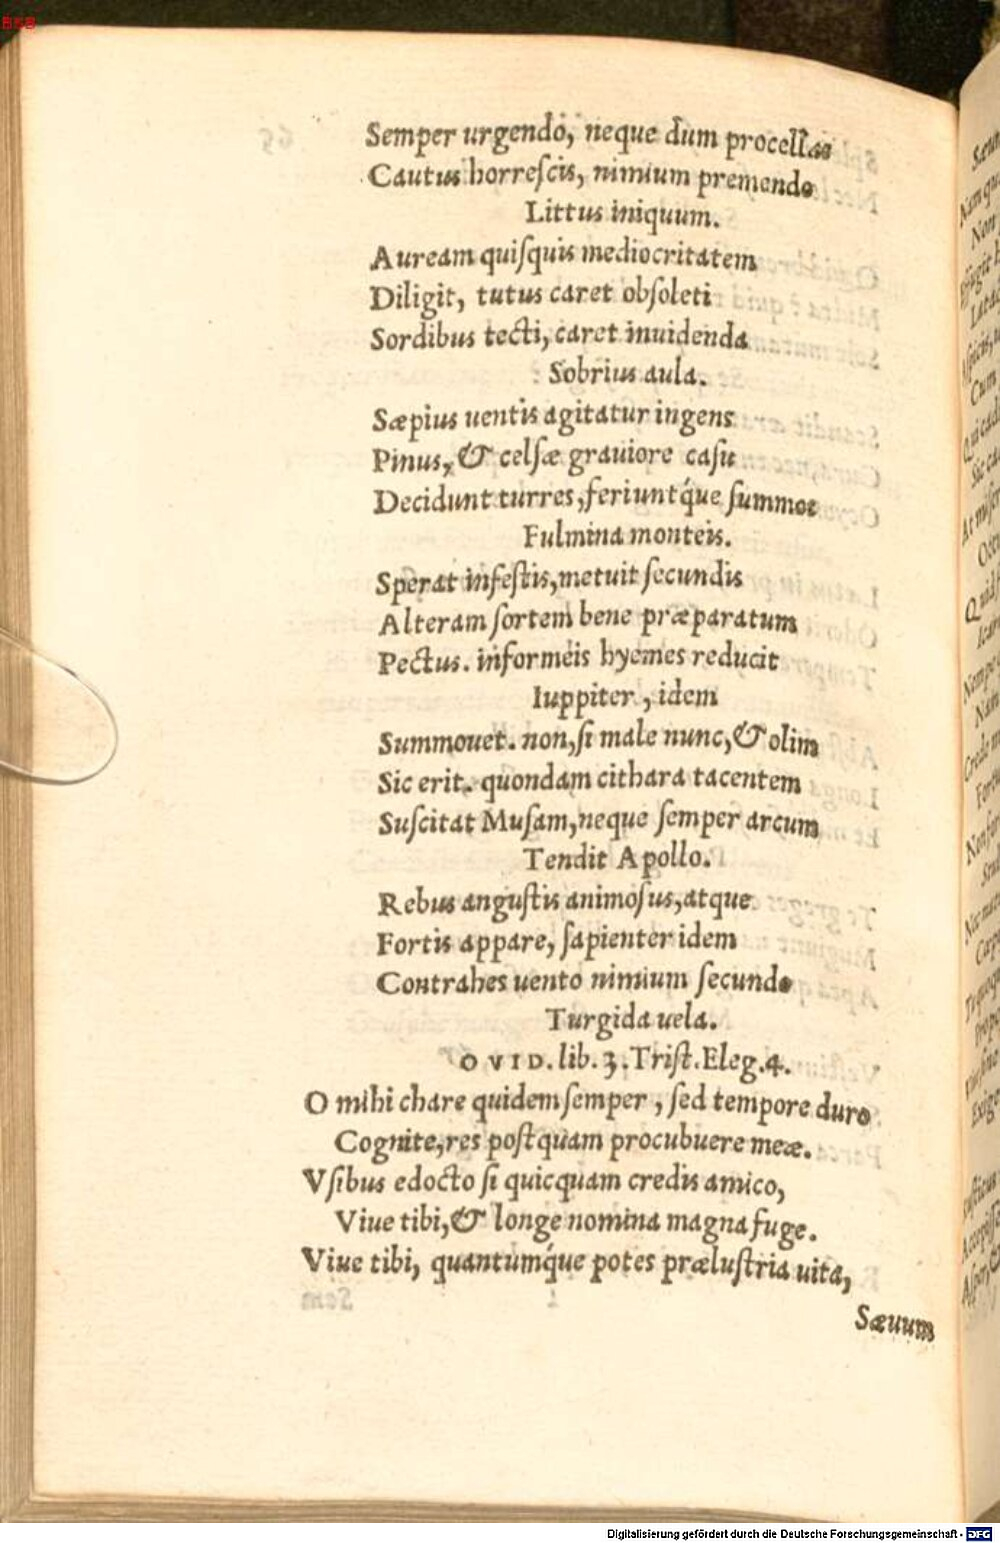 Semper urgendo, neque dum procellas
Cautus horreſcis, nimium premendo
Littus iniquum.
Auream quiſquis mediocritatem
Diligit, tutus caret obſoleti
Sordibus tecti, caret inuidenda
Sobrius aula.
Sæpius uentis agitatur ingens
Pinus, & celſæ grauiore caſu
Decidunt turres, feriuntq́ue ſummos
Fulmina monteis.
Sperat infeſtis, metuit ſecundis
Alteram ſortem bene præparatum
Pectus. informeis hyemes reducit
Iuppiter, idem
Summouet. non, ſi male nunc, & olim
Sic erit. quondam cithara tacentem
Suſcitat Muſam, neque ſemper arcum
Tendit Apollo.
Rebus anguſtis animoſus, atque
Fortis appare, ſapienter idem
Contrahes uento nimium ſecundo
Turgida uela.
OVID. lib. 3. Triſt. Eleg. 4.
O mihi chare quidem ſemper, ſed tempore duro
Cognite, res poſtquam procubuere meæ.
Vſibus edocto ſi quicquam credis amico,
Viue tibi, & longe nomina magna fuge.
Viue tibi, quantumq́ue potes præluſtria uita,
Sæuum
Digitalisierung gefördert durch die Deutsche Forschungsgemeinschaft - DFG